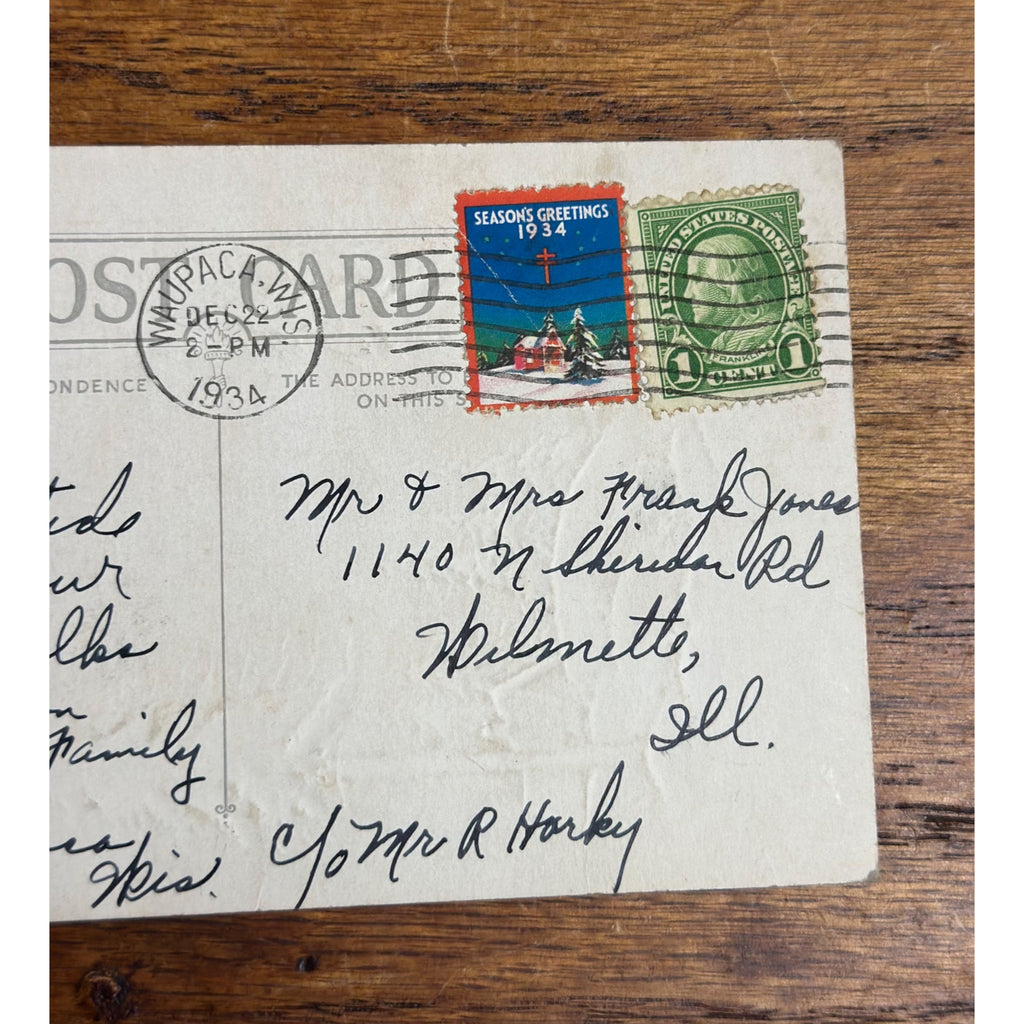 SEASON'S GREETINGS
1934
UNITED STATES POSTAGE
FRANKLIN
1 CENT 1
POST CARD
WAUPACA, WIS.
DEC 22
2 - PM
1934
ONDENCE
THE ADDRESS TO
ON THIS S
Mr & Mrs Frank Jones
1140 N Sheridan Rd
Wilmette,
Ill.
c/o Mr R Horky
ur
lks
Family
Wis.